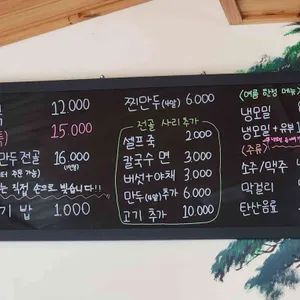 12.000
특) 15.000
만두전골 16.000
는 직접 손으로 빚습니다!!
기 밥 1.000
찐만두(4알) 6.000
전골 사리추가
셀프죽 2.000
칼국수 면 3.000
버섯+야채 3.000
만두(4알)추가 6.000
고기 추가 10.000
(여름 한정 메뉴)
냉모밀
냉모밀+유부
(주류)
소주/맥주
막걸리
탄산음료